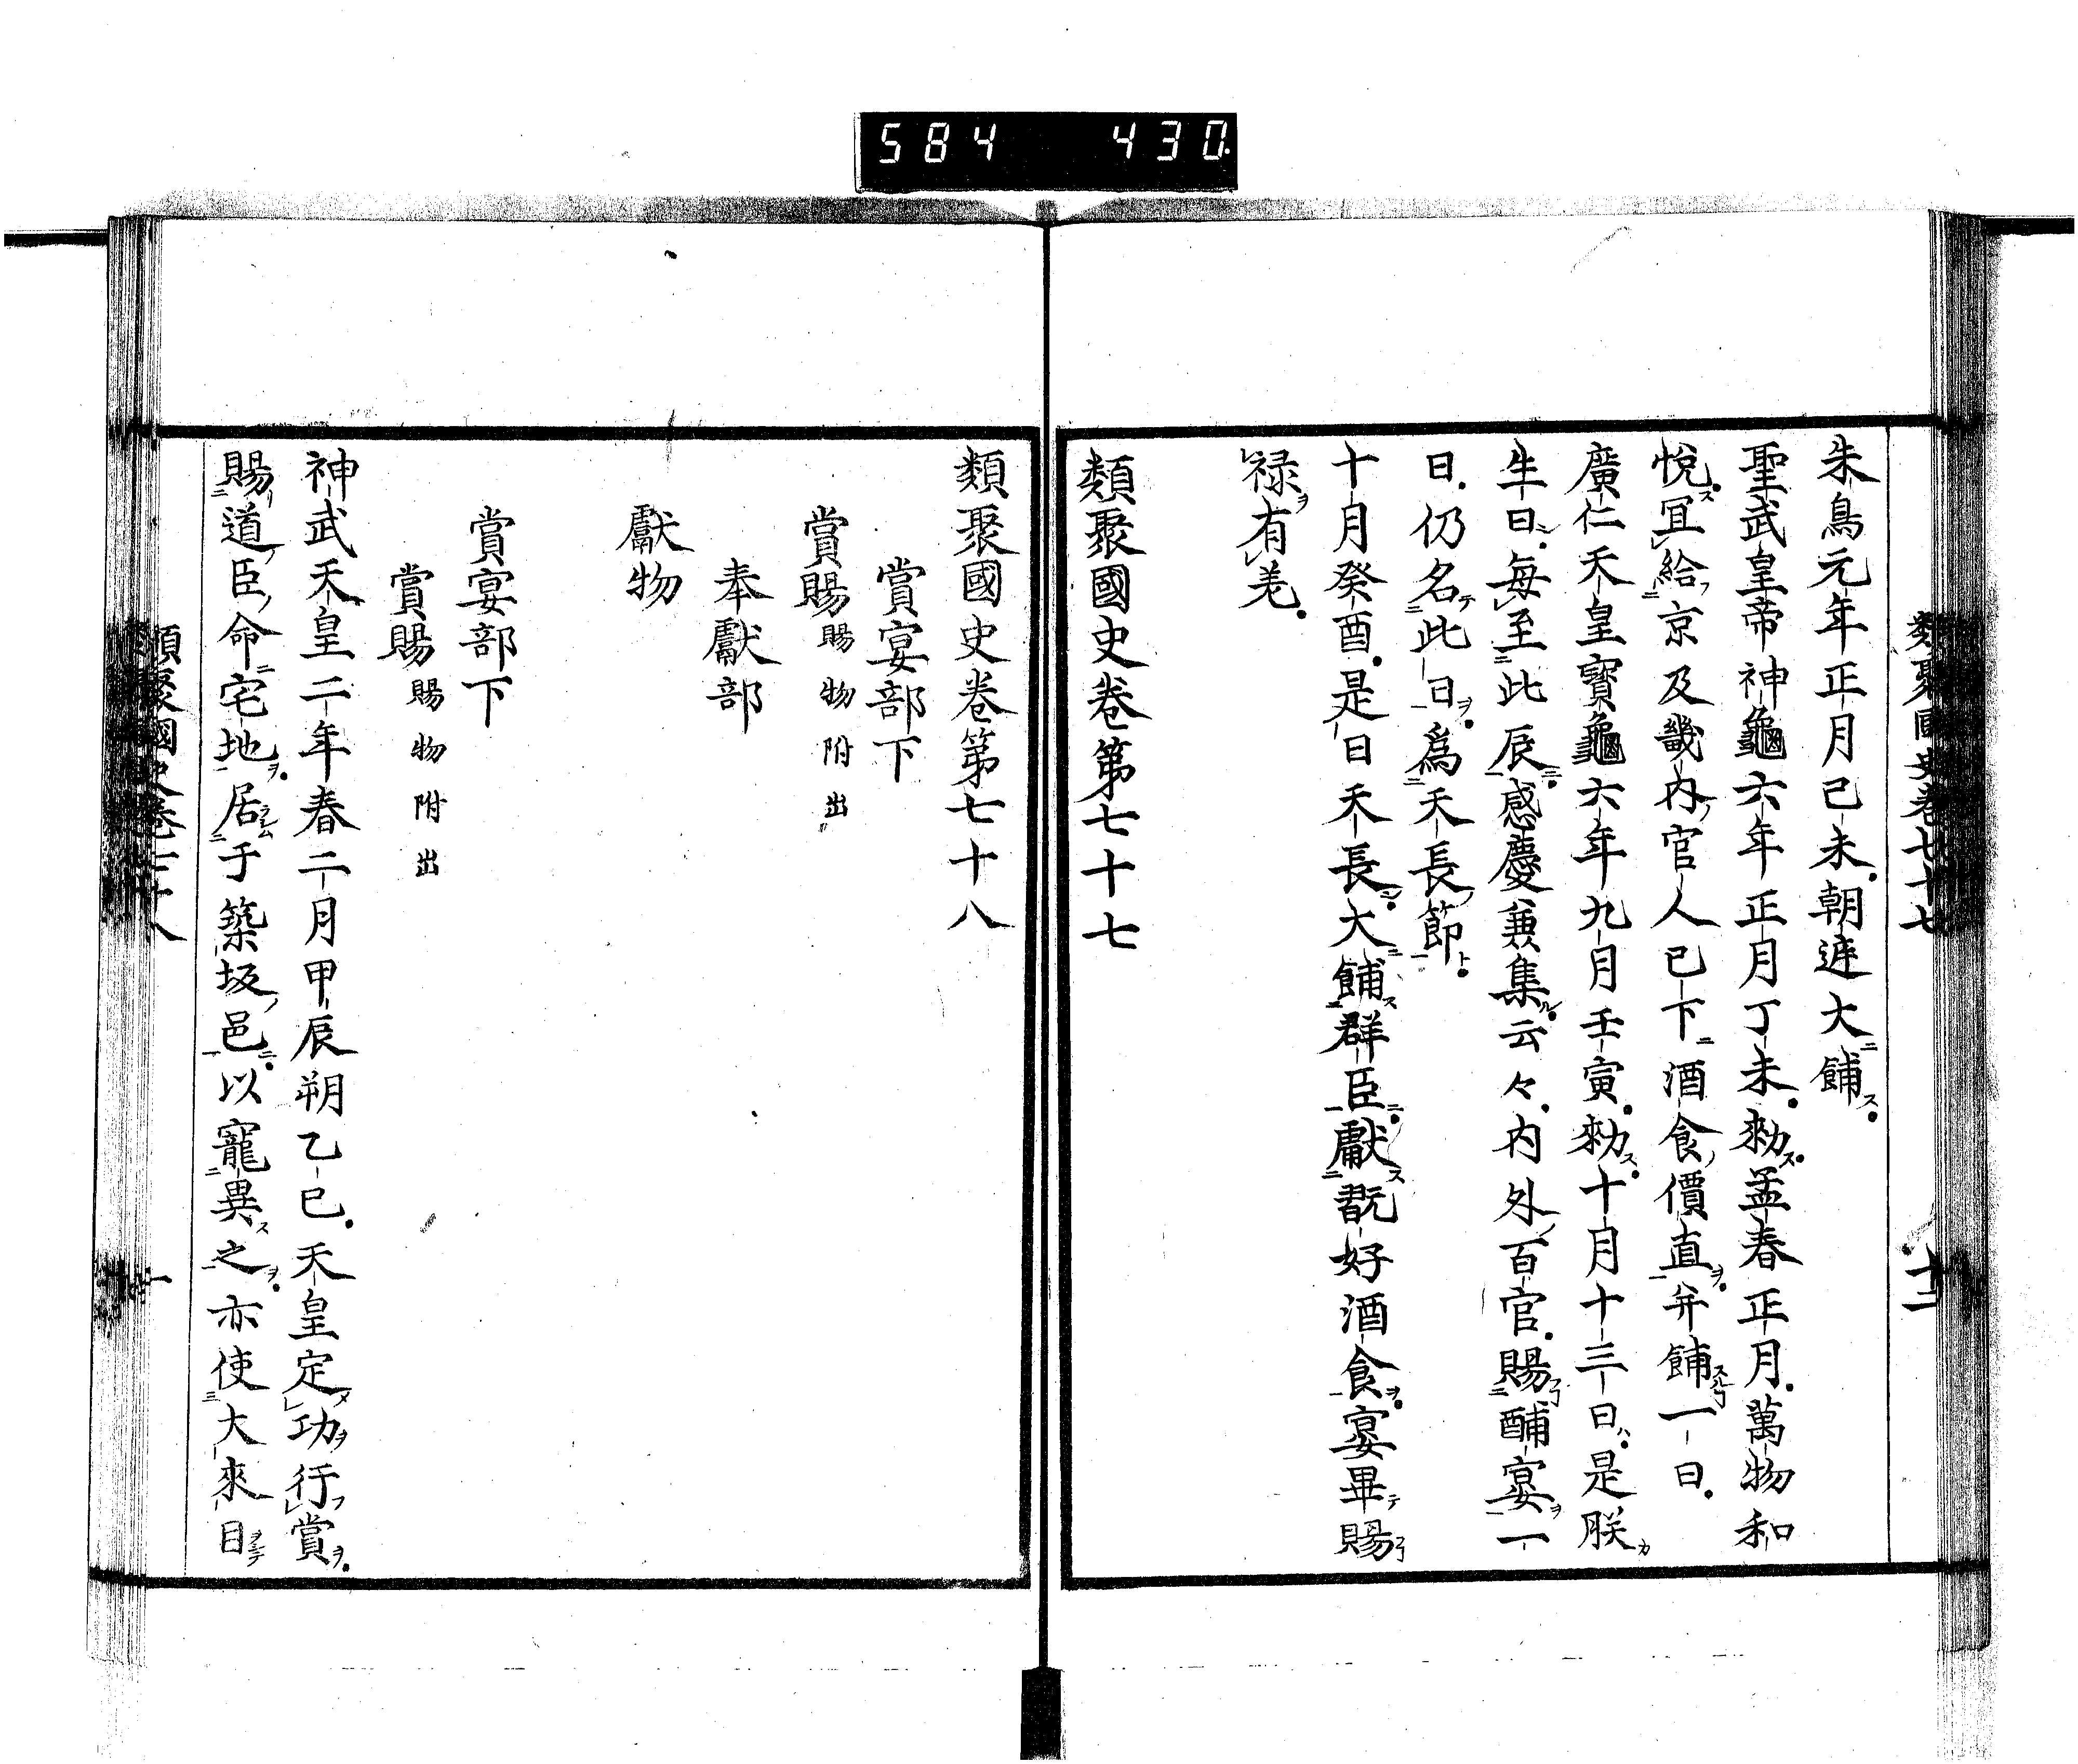 584 430
類聚國史卷七十七 十二
朱鳥元年正月己未朝遅大餔
聖武皇帝神龜六年正月丁未勑孟春正月萬物和
悅冝給京及畿内官人已下酒食價直并餔一日
廣仁天皇寳龜六年九月壬寅勑十月十三日是朕
生日每至此辰感慶兼集云々内外百官賜酺宴一
日仍名此日爲天長節
十月癸酉是日天長大餔群臣獻翫好酒食宴畢賜
禄有差
類聚國史卷第七十七
類聚國史卷第七十八
賞宴部下
賞賜賜物附出
奉獻部
獻物
賞宴部下
賞賜賜物附出
神武天皇二年春二月甲辰朔乙巳天皇定功行賞
賜道臣命宅地居于築坂邑以寵異之亦使大來目
類聚國史卷七十八 一